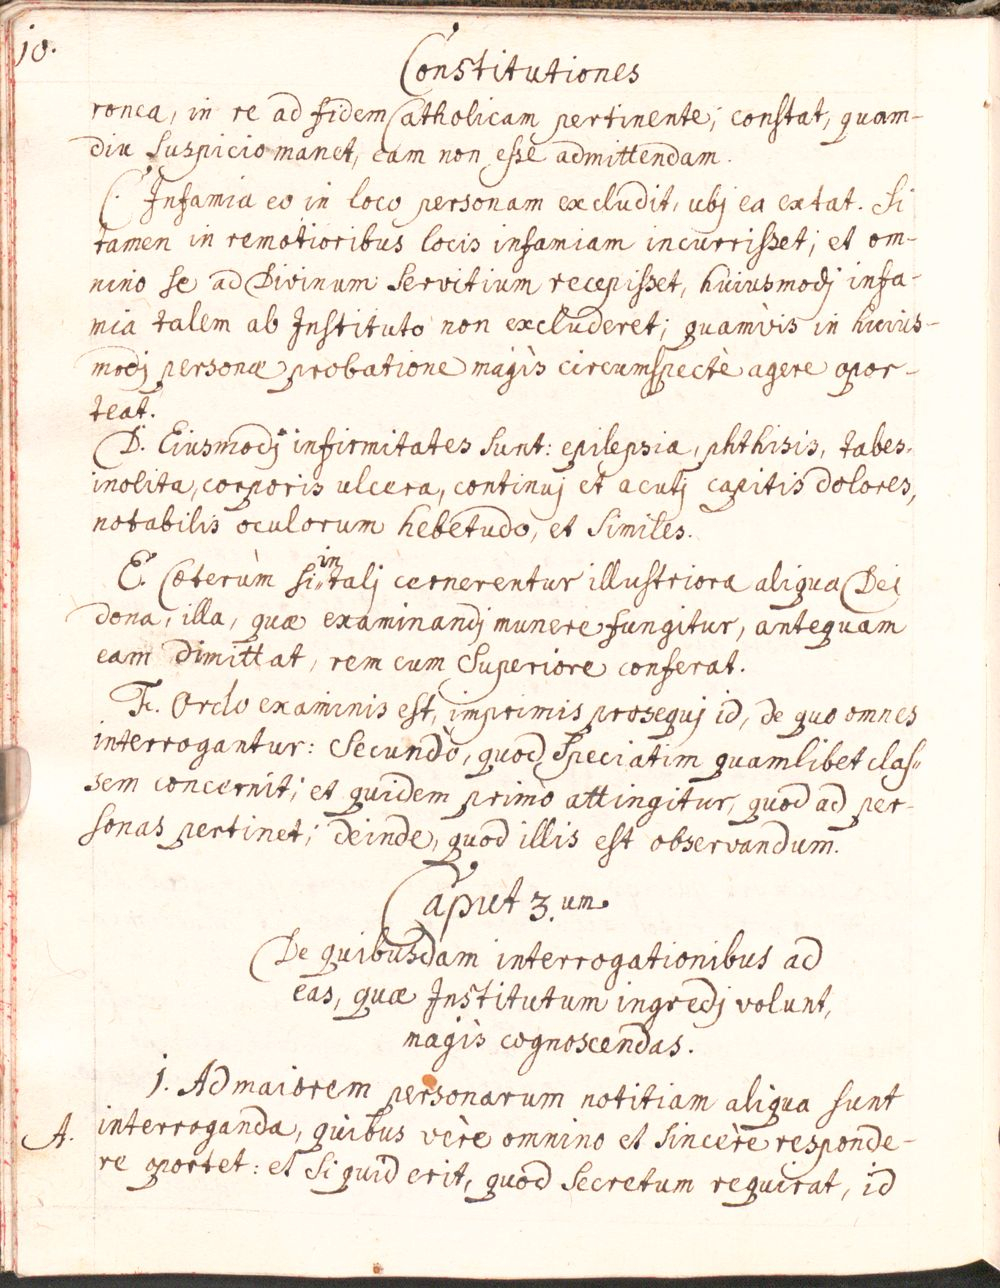 10.
Constitutiones
ronea, in re ad fidem Catholicam pertinente; constat, quam-
diu suspicio manet, eam non esse admittendam.
C. Infamia eo in loco personam excludit, ubj ea extat. Si
tamen in remotioribus locis infamiam incurrisset; et om-
nino se ad Divinum Servitium recepisset, huiusmodj infa-
mia talem ab Instituto non excluderet; quamvis in huius-
modj personæ probatione magis circumspectè agere opor-
teat.
D. Eiusmodj infirmitates sunt: epilepsia, phthisis, tabes
inolita, corporis ulcera, continuj et acutj capitis dolores,
notabilis oculorum hebetudo, et similes.
E. Cœterùm si in talj cernerentur illustriora aliqua Dei
dona, illa, quæ examinandj munere fungitur, antequam
eam dimittat, rem cum Superiore conferat.
F. Ordo examinis est, imprimis prosequj id, de quo omnes
interrogantur: Secundò, quod speciatim quamlibet clas-
sem concernit; et quidem primò attingitur, quod ad per-
sonas pertinet; deinde, quod illis est observandum.
Caput 3.um
De quibusdam interrogationibus ad
eas, quæ Institutum ingredj volunt,
magis cognoscendas.
1. Ad maiorem personarum notitiam aliqua sunt
A. interroganda, quibus vère omnino et sincère responde-
re oportet: et si quid erit, quod secretum requirat, id